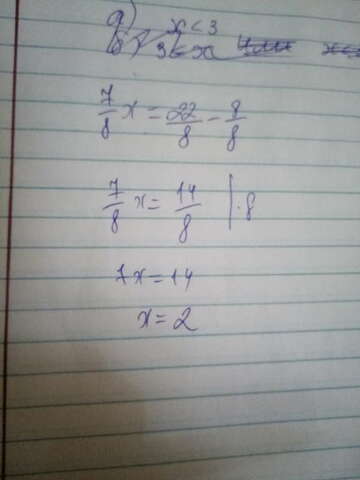 а) x<3
7/8 x = 22/8 - 8/8
7/8 x = 14/8 | · 8
7x = 14
x = 2